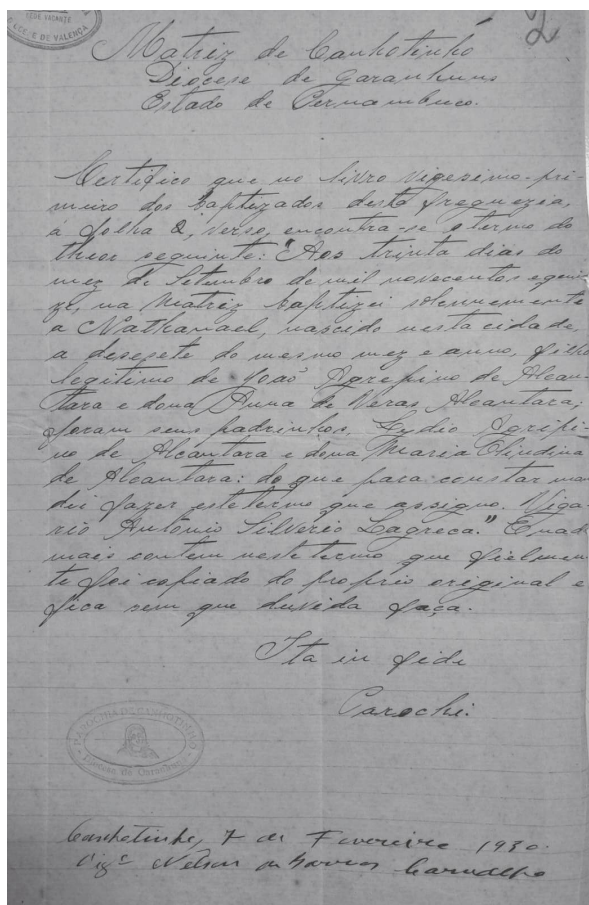 SEDE VACANTE
E DE VALENÇA
2
Matriz de Canhotinho
Diocese de Garanhuns
Estado de Pernambuco.
Certifico que no livro vigesimo-pri-
meiro dos baptizados desta freguezia,
á folha 2, verso, encontra-se o termo do
theor seguinte: "Aos trinta dias do
mez de Setembro de mil novecentos e quin
ze, na Matriz baptizei solennemente
a Nathanael, nascido nesta cidade,
a desesete do mesmo mez e anno, filho
legitimo de João Agrepino de Alcan-
tara e dona Anna de Veras Alcantara;
foram seus padrinhos, Lydio Agripi-
no de Alcantara e dona Maria Olindina
de Alcantara: do que para constar man
dei fazer este termo que assigno. Viga-
rio Antônio Silverio Lagreca." E nad
mais contem neste termo que fielmen
te foi copiado do proprio original e
fica sem que duvida faça.
Ita in fide
Parochi.
PAROCHIA DE CANHOTINHO
Diocese de Garanhuns
Canhotinho, 7 de Fevereiro 1930.
Vigº Nelson de Barros Carvalho